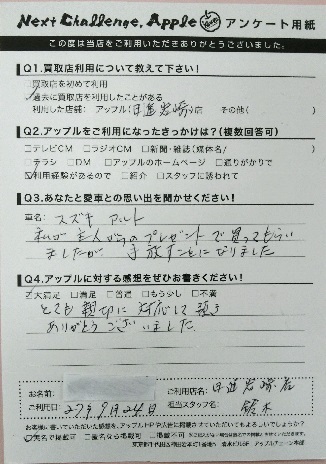 Next Challenge. Apple アンケート用紙
この度は当店をご利用いただきありがとうございました。
Q1.買取店利用について教えて下さい!
□買取店を初めて利用
☑過去に買取店を利用したことがある
利用した店舗: アップル(日進岩崎)店 その他( )
Q2.アップルをご利用になったきっかけは?(複数回答可)
□テレビCM □ラジオCM □新聞・雑誌(媒体名/ )
□チラシ □DM □アップルのホームページ □通りがかりで
☑利用経験があるので □紹介 □スタッフに誘われて
Q3.あなたと愛車との思い出を聞かせください!
車名: スズキ アルト
私が主人からのプレゼントで買ってもらい
ましたが 手放すことになりました
Q4.アップルに対する感想をぜひお書きください!
☑大満足 □満足 □普通 □もう少し □不満
とても親切に対応して頂き
ありがとうございました
お名前:
ご利用店名: 日進岩崎店
ご利用日: 27年9月24日
担当スタッフ名: 鈴木
お客様に書いていただいた感想を、アップルHPや入舎に掲載させていただいてもよろしいでしょうか?
☑実名で掲載可 □匿名なら掲載可 □掲載不可